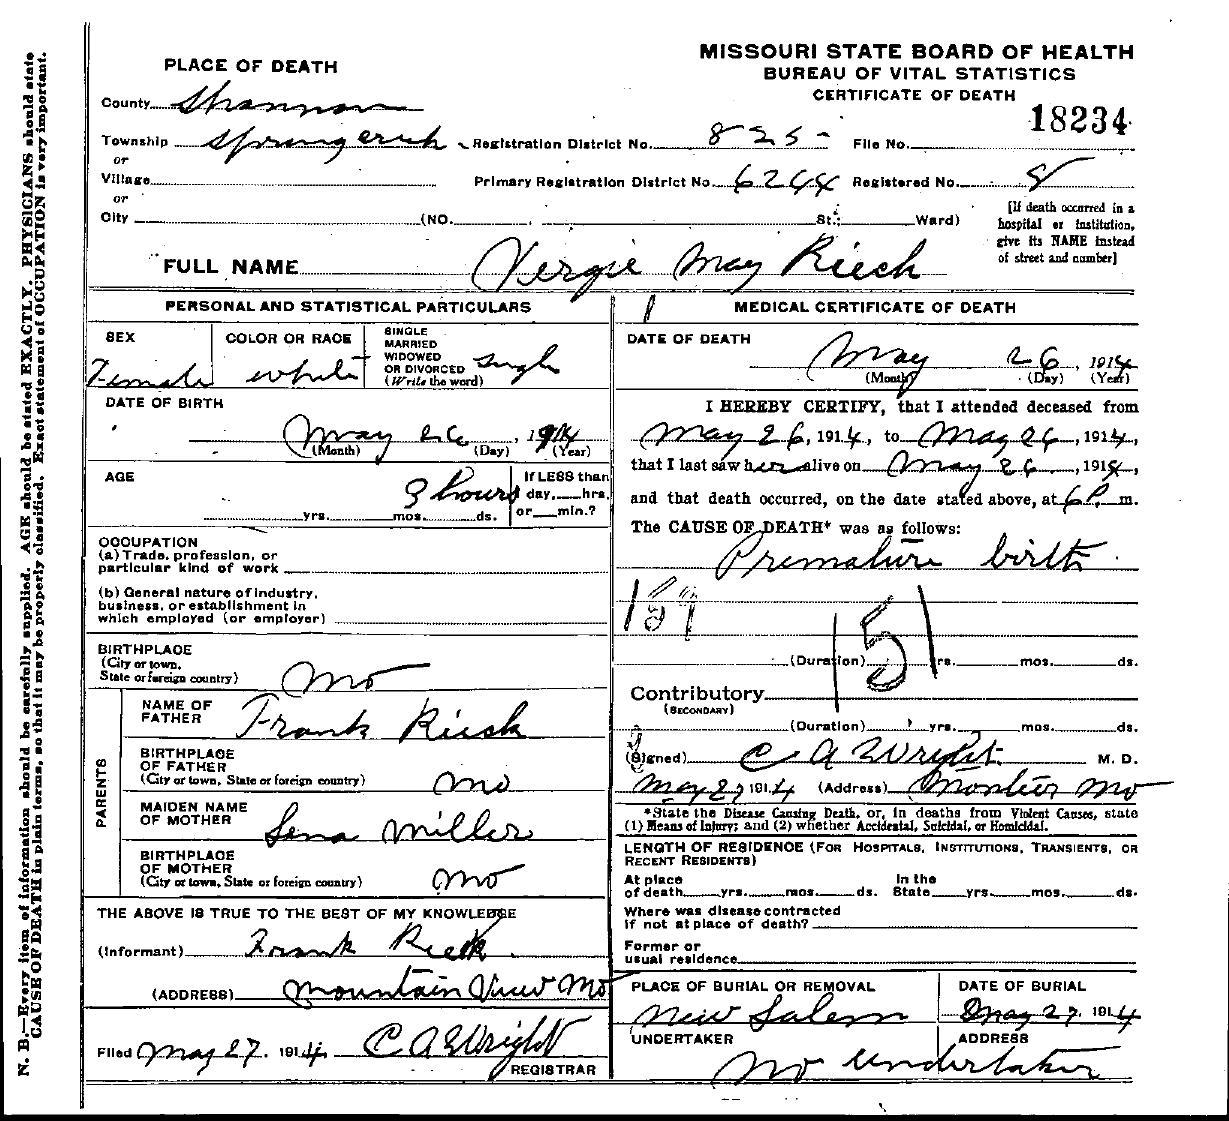 MISSOURI STATE BOARD OF HEALTH
BUREAU OF VITAL STATISTICS
CERTIFICATE OF DEATH
18234
PLACE OF DEATH
County Shannon
Township Springcreek Registration District No. 825 - File No.
or
Village Primary Registration District No. 6244 Registered No. 8
or
City (NO. St.; Ward)
[If death occurred in a
hospital or institution,
give its NAME instead
of street and number]
FULL NAME Vergie May Rieck
PERSONAL AND STATISTICAL PARTICULARS
SEX
Female
COLOR OR RACE
white
SINGLE
MARRIED
WIDOWED
OR DIVORCED
(Write the word)
single
DATE OF BIRTH
May 26, 1914
(Month) (Day) (Year)
AGE
3 hours
yrs. mos. ds.
If LESS than
day, hrs.
or min.?
OCCUPATION
(a) Trade, profession, or
particular kind of work
(b) General nature of industry,
business, or establishment in
which employed (or employer)
BIRTHPLACE
(City or town,
State or foreign country)
Mo
PARENTS
NAME OF
FATHER
Frank Rieck
BIRTHPLACE
OF FATHER
(City or town, State or foreign country)
Mo
MAIDEN NAME
OF MOTHER
Lena Miller
BIRTHPLACE
OF MOTHER
(City or town, State or foreign country)
Mo
THE ABOVE IS TRUE TO THE BEST OF MY KNOWLEDGE
(Informant) Frank Rieck
(ADDRESS) Mountain View Mo
Filed May 27, 1914 C A Wright
REGISTRAR
MEDICAL CERTIFICATE OF DEATH
DATE OF DEATH
May 26, 1914
(Month) (Day) (Year)
I HEREBY CERTIFY, that I attended deceased from
May 26, 1914, to May 26, 1914,
that I last saw her alive on May 26, 1914,
and that death occurred, on the date stated above, at 6 P. m.
The CAUSE OF DEATH* was as follows:
Premature birth
151
(Duration) yrs. mos. ds.
Contributory
(SECONDARY)
(Duration) yrs. mos. ds.
(Signed) C A Wright. M. D.
May 27 1914 (Address) Montier Mo
*State the Disease Causing Death, or, in deaths from Violent Causes, state
(1) Means of Injury; and (2) whether Accidental, Suicidal, or Homicidal.
LENGTH OF RESIDENCE (FOR HOSPITALS, INSTITUTIONS, TRANSIENTS, OR
RECENT RESIDENTS)
At place In the
of death yrs. mos. ds. State yrs. mos. ds.
Where was disease contracted
if not at place of death?
Former or
usual residence
PLACE OF BURIAL OR REMOVAL
New Salem
DATE OF BURIAL
May 27, 1914
UNDERTAKER
ADDRESS
No undertaker
N. B.—Every item of information should be carefully supplied. AGE should be stated EXACTLY. PHYSICIANS should state
CAUSE OF DEATH in plain terms, so that it may be properly classified. Exact statement of OCCUPATION is very important.